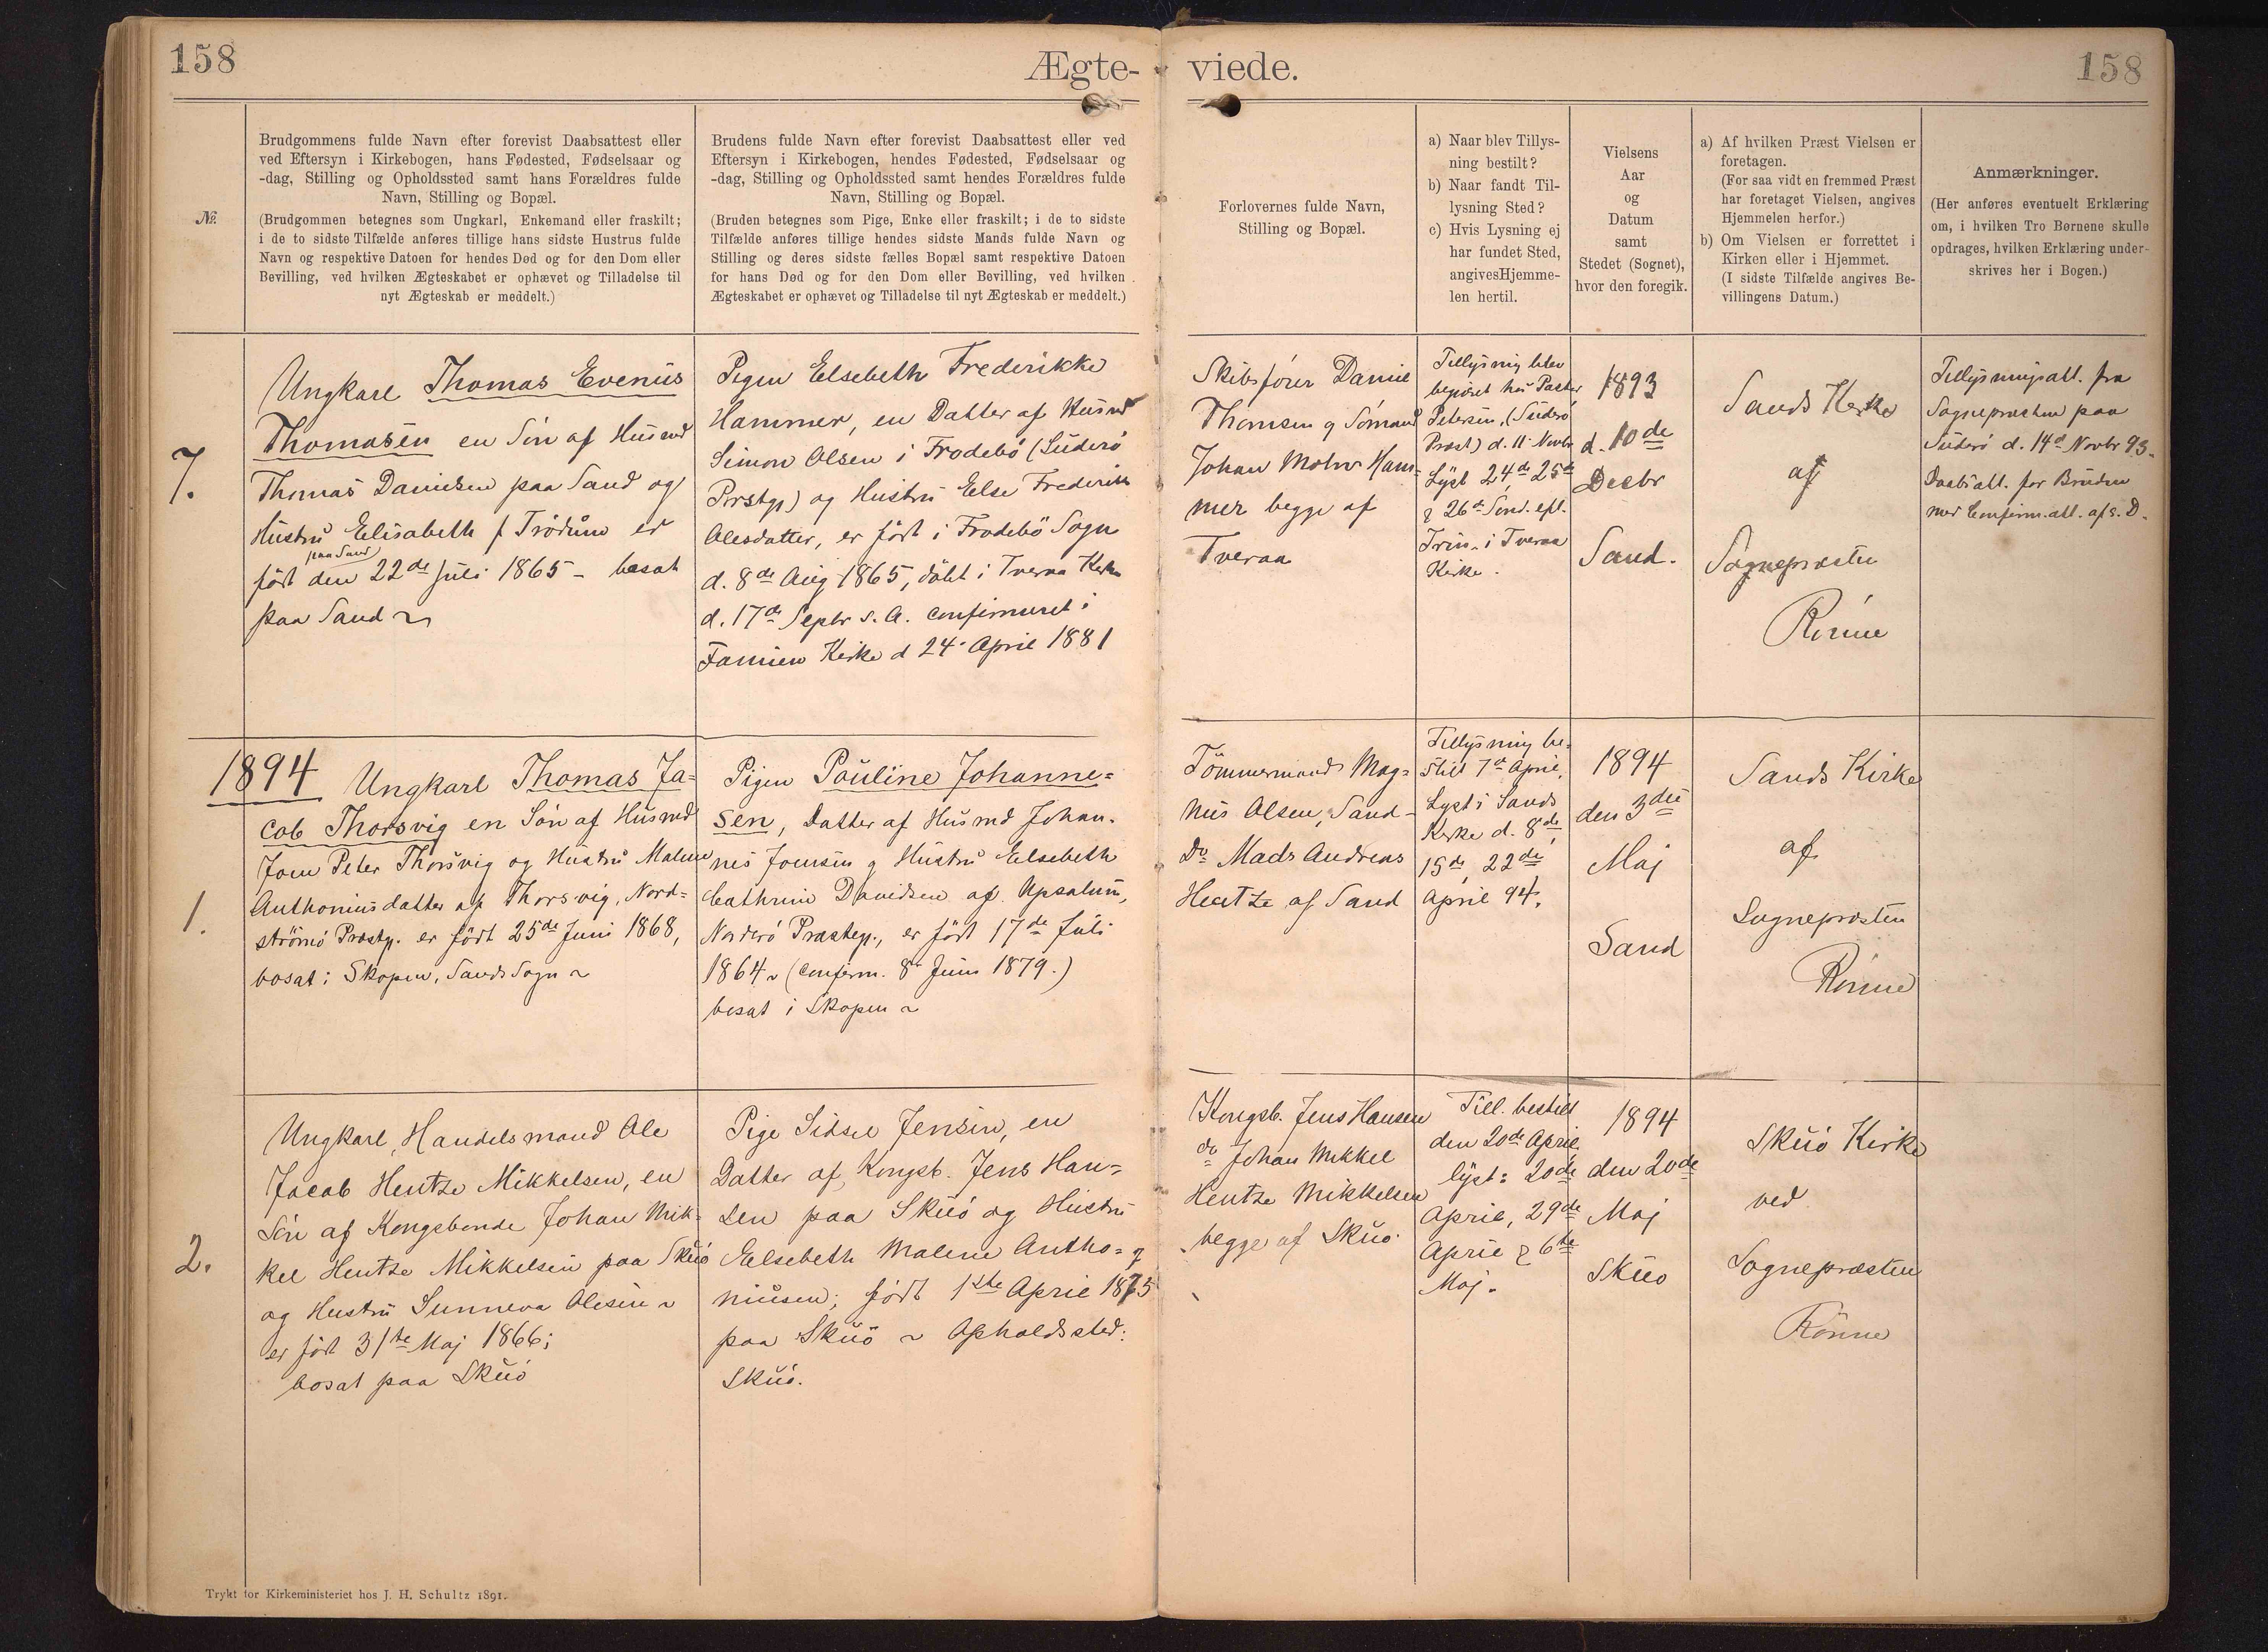 158
Ægte-
No.
Brudgommens fulde Navn efter forevist Daabsattest eller
ved Eftersyn i Kirkebogen, hans Fødested, Fødselsaar og
-dag, Stilling og Opholdssted samt hans Forældres fulde
Navn, Stilling og Bopæl.
(Brudgommen betegnes som Ungkarl, Enkemand eller fraskilt;
i de to sidste Tilfælde anføres tillige hans sidste Hustrus fulde
Navn og respektive Datoen for hendes Død og for den Dom eller
Bevilling, ved hvilken Ægteskabet er ophævet og Tilladelse til
nyt Ægteskab er meddelt.)
Brudens fulde Navn efter forevist Daabsattest eller ved
Eftersyn i Kirkebogen, hendes Fødested, Fødselsaar og
-dag, Stilling og Opholdssted samt hendes Forældres fulde
Navn, Stilling og Bopæl.
(Bruden betegnes som Pige, Enke eller fraskilt; i de to sidste
Tilfælde anføres tillige hendes sidste Mands fulde Navn og
Stilling og deres sidste fælles Bopæl samt respektive Datoen
for hans Død og for den Dom eller Bevilling, ved hvilken
Ægteskabet er ophævet og Tilladelse til nyt Ægteskab er meddelt.)
7.
Ungkarl Thomas Evenius
Thomasen en Søn af Husmd
Thomas Danielsen paa Sand og
Hustru Elisabeth f Trödum er
paa Sand
født den 22de Juli 1865 - bosat
paa Sand
Pigen Elsebeth Frederikke
Hammer, en Datter af Husmd
Simon Olsen i Frodebö (Suderö
Prstgp) og Hustru Else Frederikke
Olesdatter, er født i Frodebö Sogn
d. 8de Aug 1865, döbt i Tveraa Kirke
d. 17de Septbr s. A. confirmeret i
Famien Kirke d 24. April 1881
1894
1.
Ungkarl Thomas Ja=
cob Thorsvig en Søn af Husmd
Joen Peter Thorsvig og Hustru Malene
Anthoniusdatter af Thorsvig, Nord=
strömö Præstg. er født 25de Juni 1868,
bosat i Skopen, Sands Sogn
Pigen Pouline Johanne=
sen, Datter af Husmd Johan-
nes Joensen og Hustru Elsebeth
Cathrine Davidsen af Upsalum,
Norderö Præsteg., er født 17de Juli
1864 (confirm. 8de Juni 1879.)
bosat i Skopen
2.
Ungkarl, Handelsmand Ole
Jacob Hentze Mikkelsen, en
Søn af Kongsbonde Johan Mik-
kel Hentze Mikkelsen paa Skuö
og Hustru Sunneva Olesen
er født 31te Maj 1866;
bosat paa Skuö
Pige Sidsel Jensen, en
Datter af Kongsb. Jens Han=
sen paa Skuö og Hustru
Elsebeth Malene Antho=
niusen; født 1ste April 1875
paa Skuö Opholdssted:
Skuö.
Trykt for Kirkeministeriet hos J. H. Schultz 1891.
viede.
158
Forlovernes fulde Navn,
Stilling og Bopæl.
a) Naar blev Tillys-
ning bestilt?
b) Naar fandt Til-
lysning Sted?
c) Hvis Lysning ej
har fundet Sted,
angives Hjemme-
len hertil.
Vielsens
Aar
og
Datum
samt
Stedet (Sognet),
hvor den foregik.
a) Af hvilken Præst Vielsen er
foretagen.
(For saa vidt en fremmed Præst
har foretaget Vielsen, angives
Hjemmelen herfor.)
b) Om Vielsen er forrettet i
Kirken eller i Hjemmet.
(I sidste Tilfælde angives Be-
villingens Datum.)
Anmærkninger.
(Her anføres eventuelt Erklæring
om, i hvilken Tro Børnene skulle
opdrages, hvilken Erklæring under-
skrives her i Bogen.)
Skibsfører Daniel
Thomsen og Sömand
Johan Mohr Ham-
mer begge af
Tveraa
Tillysning blev
begjæret hos Pastor
Petersen, (Suderö
Præst) d. 11. Novbr
Lyst 24de, 25de
& 26de Sönd. eft.
Trin. i Tveraa
Kirke.
1893
d. 10de
Decbr
Sand.
Sands Kirke
af
Sognepræsten
Rönne
Tillysningsatt. fra
Sognepræsten paa
Suderö d. 14de Novbr 93.
Daabsatt. for Bruden
med Confirm.att. af s. D.
Tömmermand Mag=
nus Olsen, Sand-
Do Mads Andreas
Hentze af Sand
Tillysning be-
stilt 7de April,
Lyst i Sands
Kirke d. 8de,
15de, 22de
April 94.
1894
den 3die
Maj
Sand
Sands Kirke
af
Sognepræsten
Rönne
Kongsb. Jens Hansen
do Johan Mikkel
Hentze Mikkelsen
begge af Skuö.
Till. bestilt
den 20de April
lyst: 20de
April, 29de
April & 6te
Maj.
1894
den 20de
Maj
Skuö
Skuö Kirke
ved
Sognepræsten
Rönne